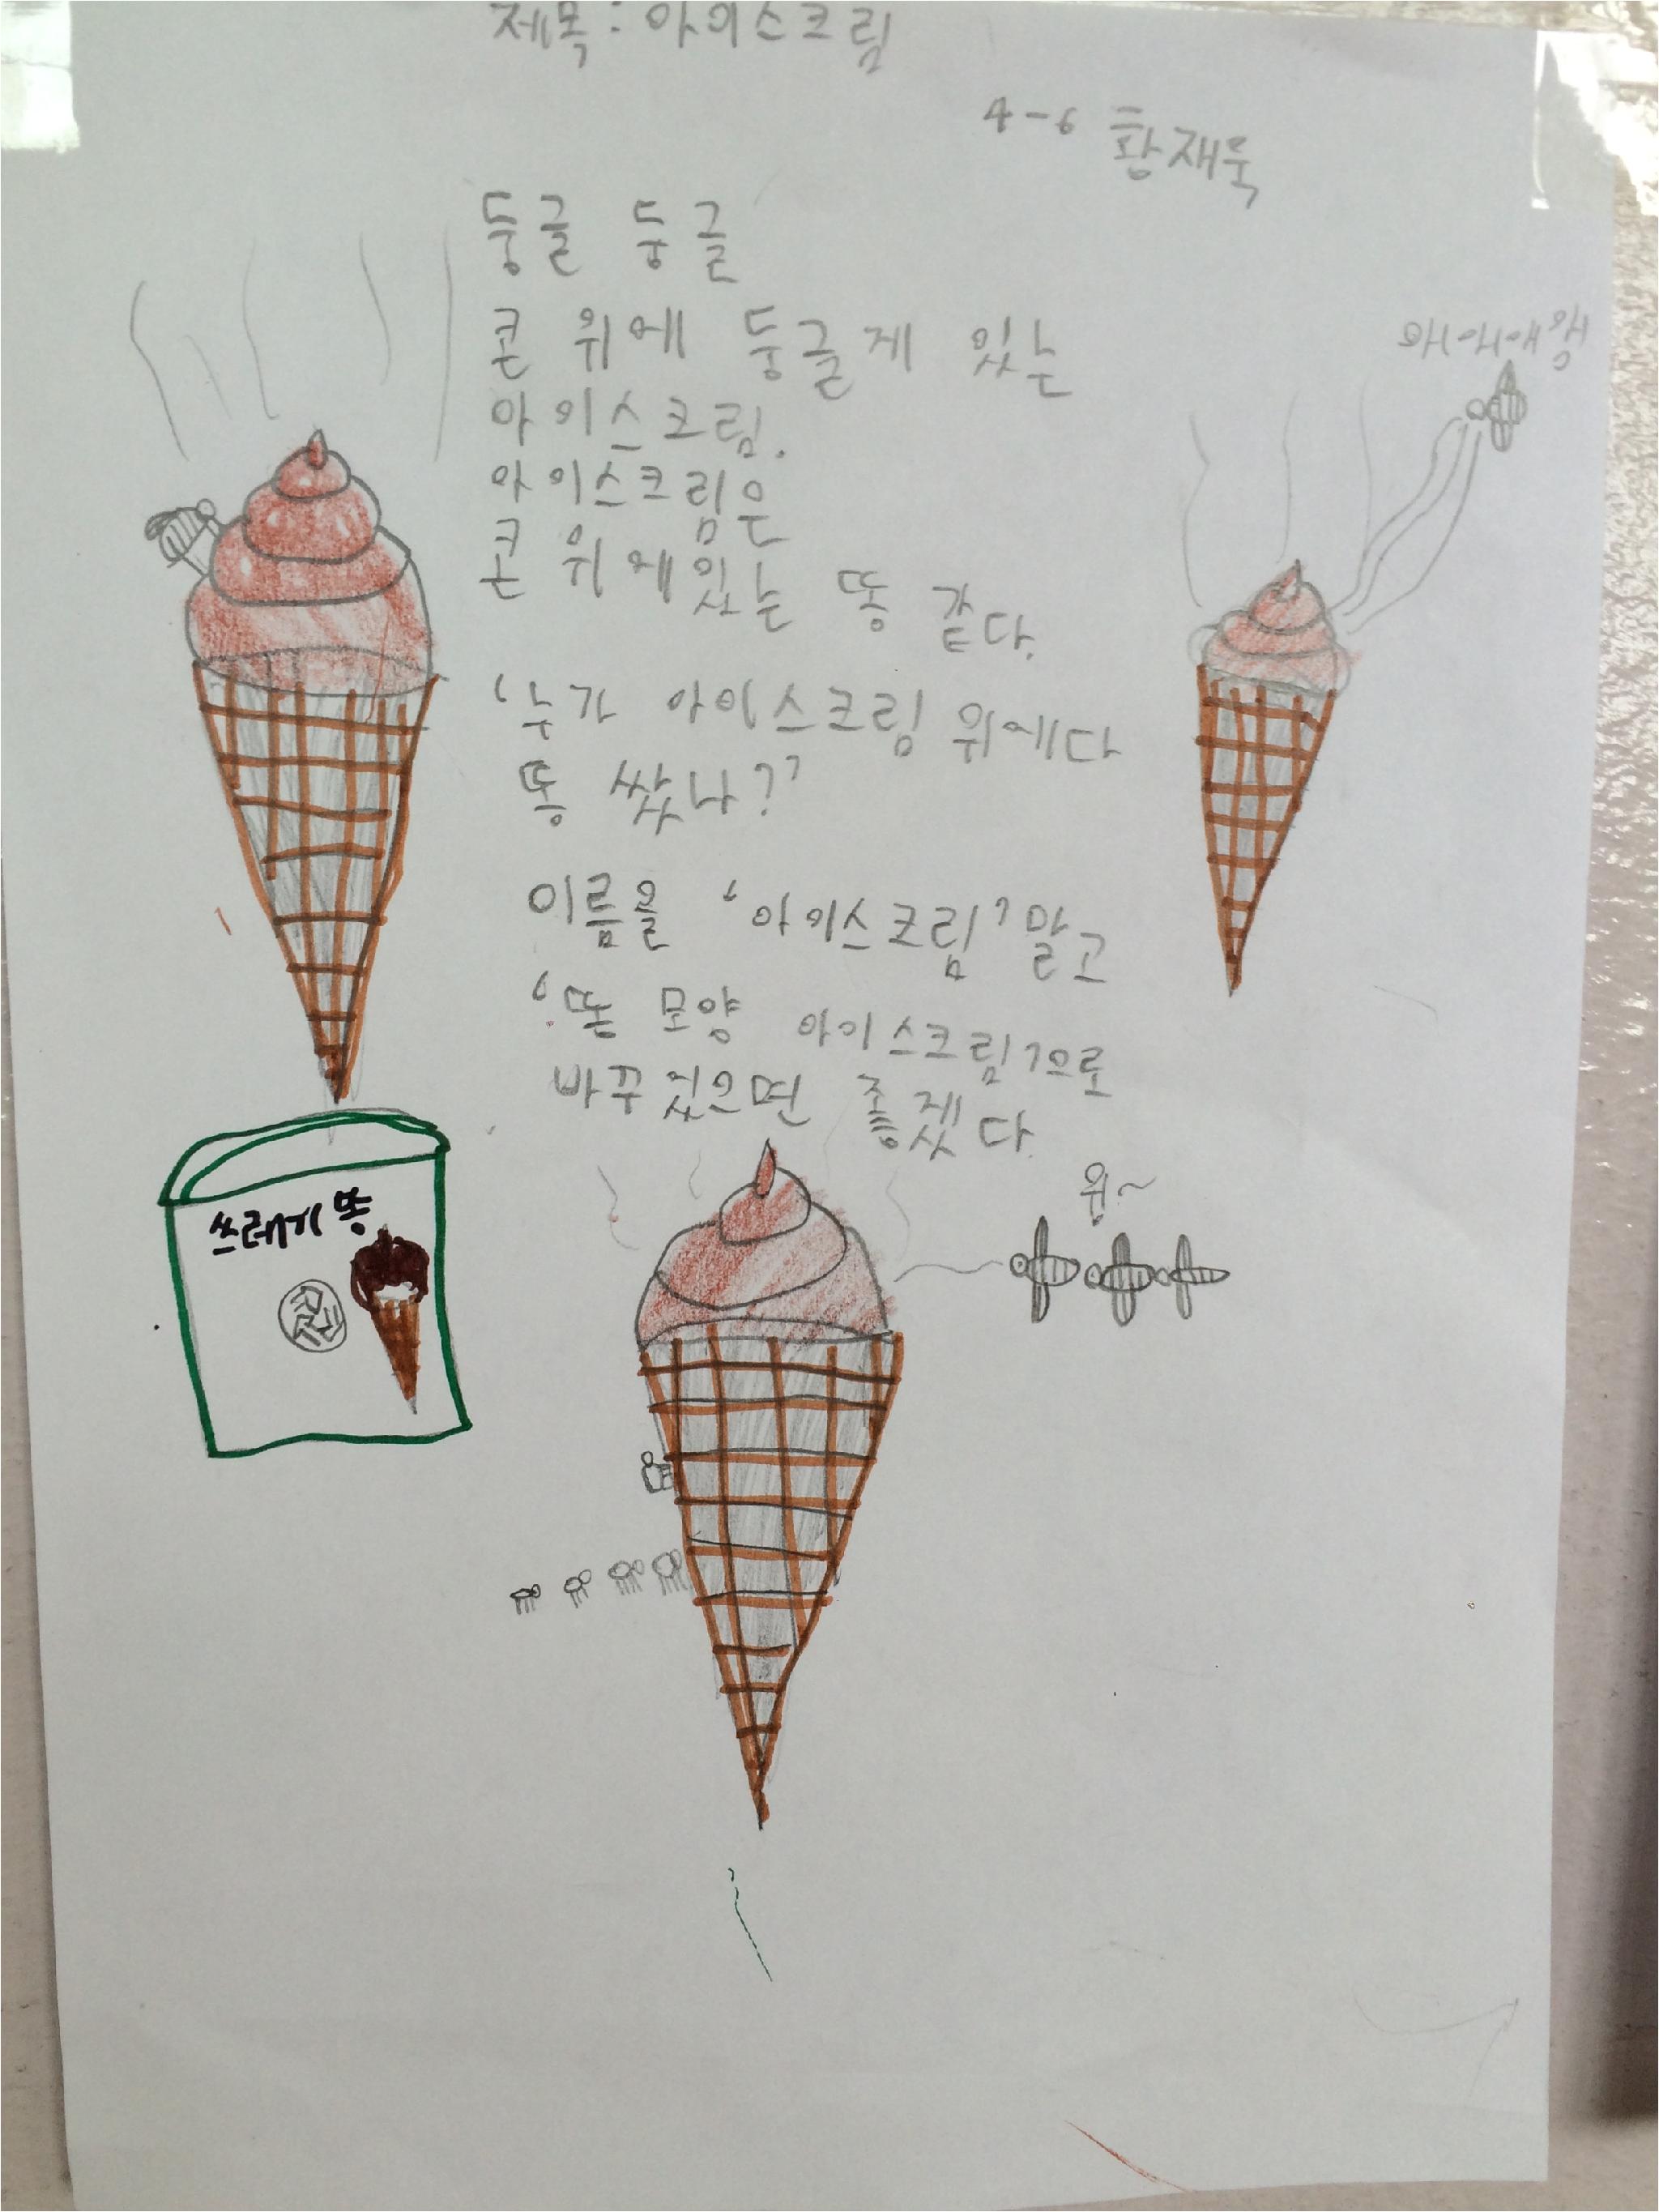 제목: 아이스크림
4-6 황재욱
둥글 둥글
콘 위에 둥글게 있는
아이스크림.
아이스크림은
콘 위에있는 똥 같다.
'누가 아이스크림 위에다
똥 쌌나?'
이름을 '아이스크림'말고
'똥 모양 아이스크림'으로
바꾸었으면 좋겠다.
윙~
쓰레기 똥